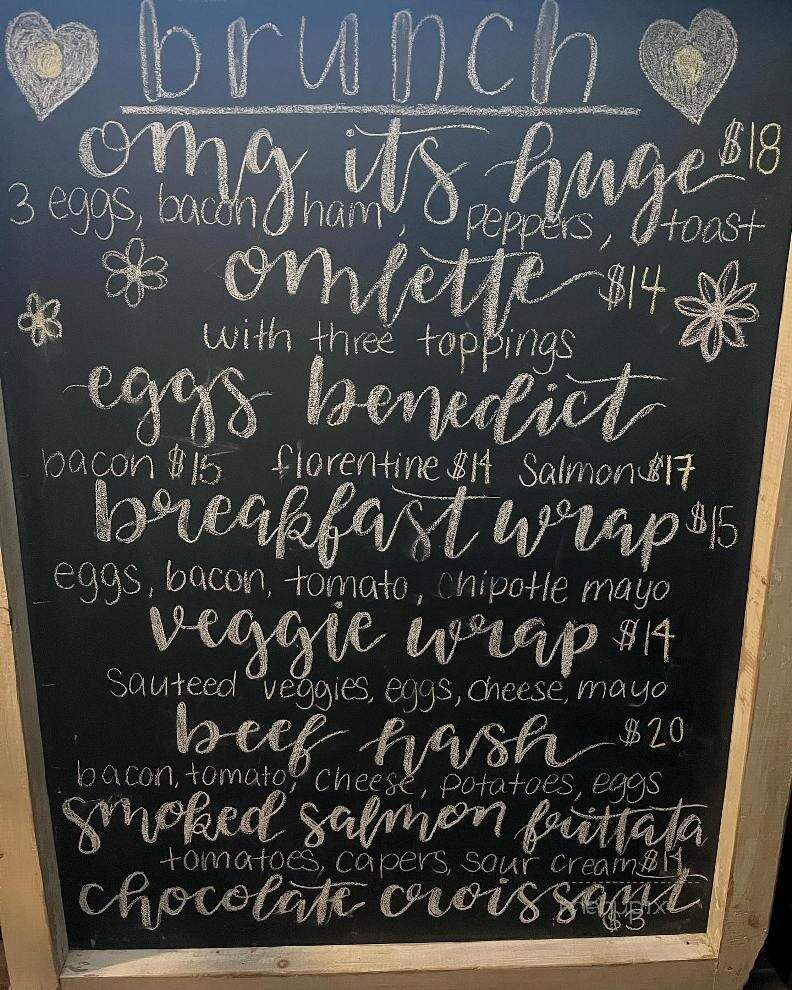 brunch
omg its huge $18
3 eggs, bacon, ham, peppers, toast
omlette $14
with three toppings
eggs benedict
bacon $15 florentine $14 Salmon $17
breakfast wrap $15
eggs, bacon, tomato, chipotle mayo
veggie wrap $14
Sauteed veggies, eggs, cheese, mayo
beef hash $20
bacon, tomato, cheese, potatoes, eggs
smoked salmon frittata
tomatoes, capers, sour cream
chocolate croissant